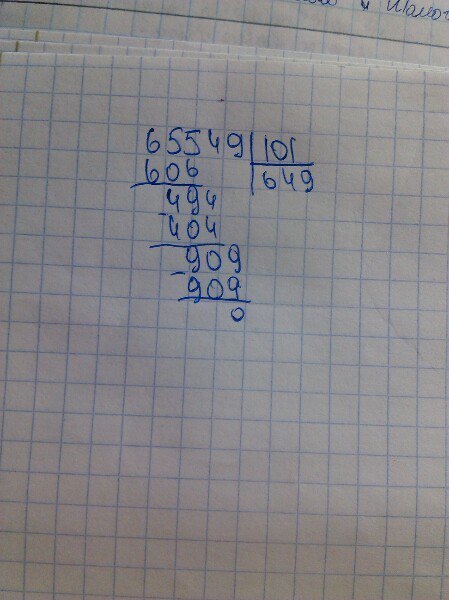 65549 | 101
606 | 649
- 494
404
- 909
909
0